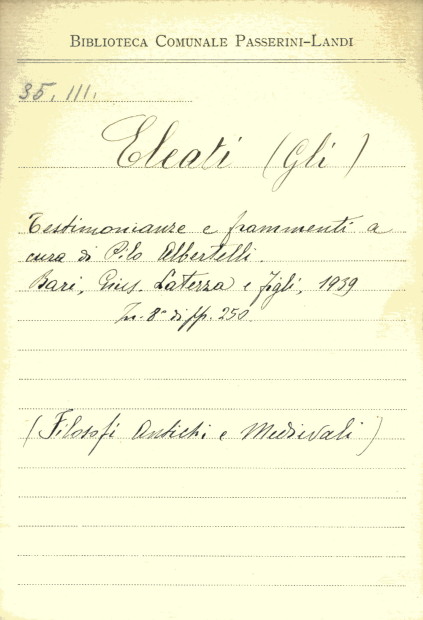 BIBLIOTECA COMUNALE PASSERINI-LANDI
35. III.
Eleati (Gli)
Testimonianze e frammenti a
cura di Pilo Albertelli.
Bari, Gius. Laterza e figli, 1939
In-8° di pp. 250
(Filosofi Antichi e Medievali)